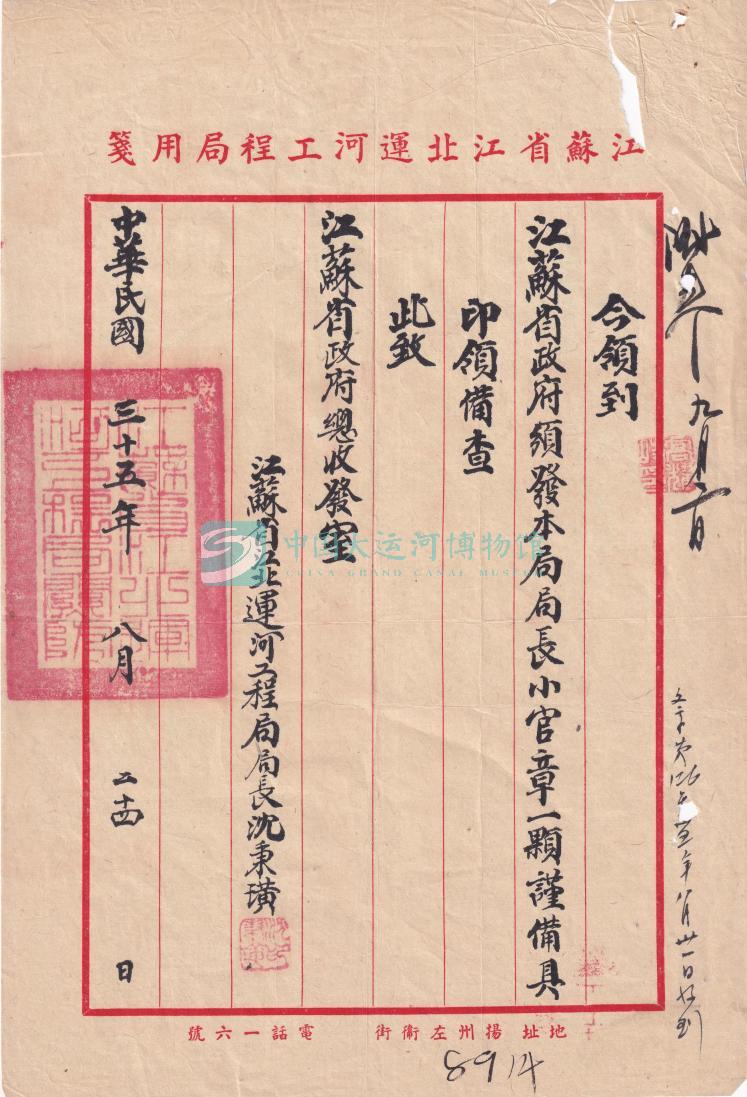 江蘇省江北運河工程局用箋
今領到
江蘇省政府頒發本局局長小官章一顆謹備具
印領備查
此致
江蘇省政府總收發室
江蘇省江北運河工程局局長沈秉璜
中華民國三十五年八月二十四日
九月二日
年八月卅一日收到
地址揚州左衛街 電話一六號
8914
中国大运河博物馆
CHINA GRAND CANAL MUSEUM